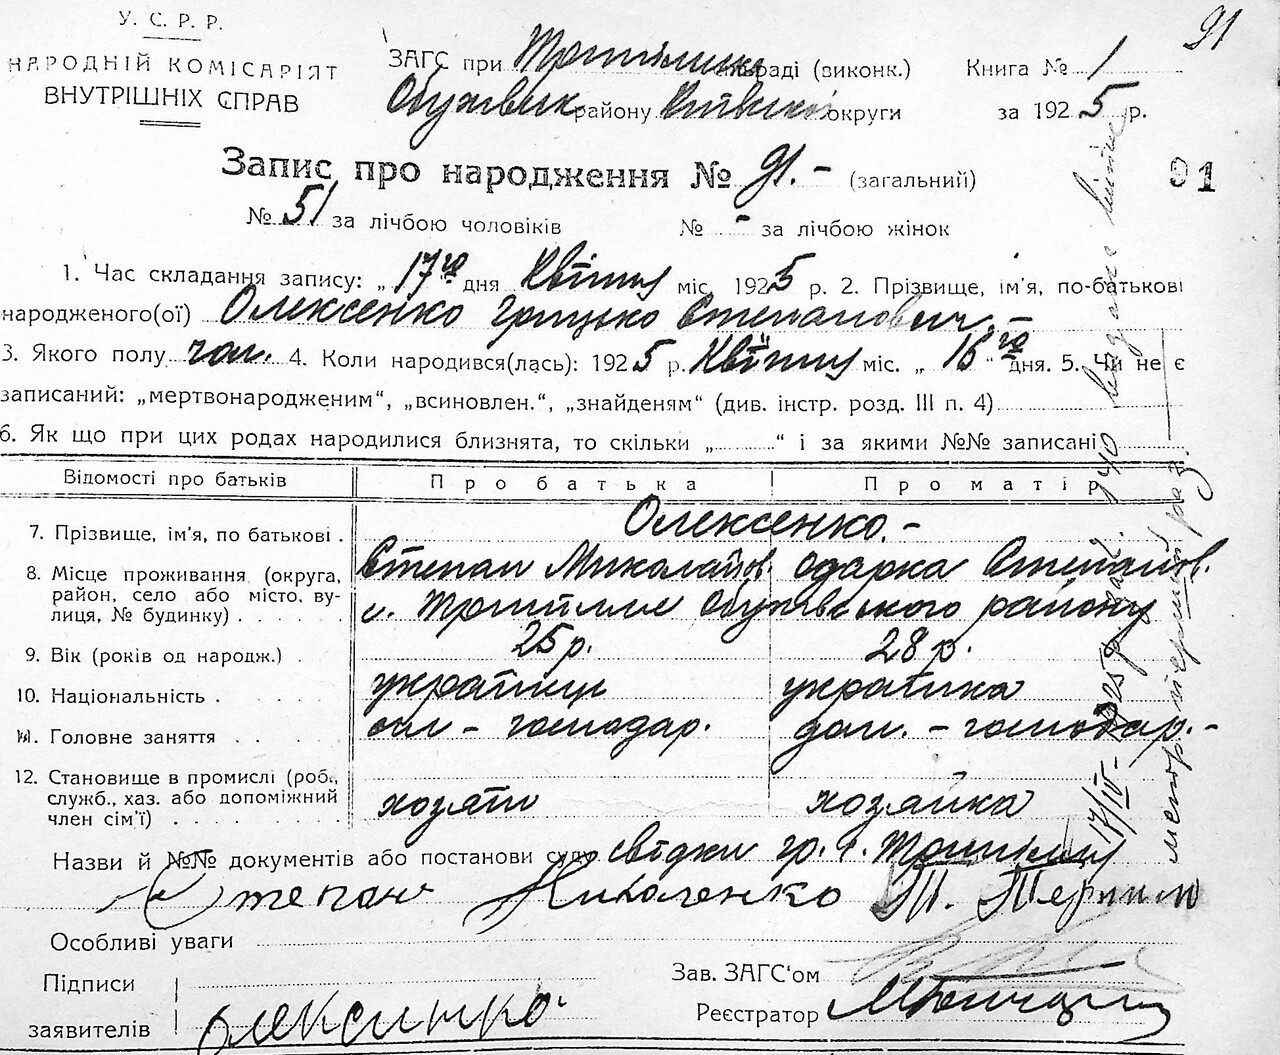 У. С. Р. Р.
91
НАРОДНІЙ КОМІСАРІЯТ
ВНУТРІШНІХ СПРАВ
ЗАГС при раді (виконк.) Книга № 1
району округи за 1925 р.
Запис про народження № 91.- (загальний)
91
№ 51 за лічбою чоловіків № - за лічбою жінок
1. Час складання запису: „17го дня Квітня міс. 1925 р. 2. Прізвище, ім'я, по-батькові
народженого(ої) Олексенко Грицько Степанович.-
3. Якого полу чол. 4. Коли народився(лась): 1925 р. Квітня міс. „16"го дня. 5. Чи не є
записаний: „мертвонародженим“, „всиновлен.“, „знайденям“ (див. інстр. розд. III п. 4)
6. Як що при цих родах народилися близнята, то скільки „ “ і за якими №№ записані
Відомості про батьків Про батька Про матір
7. Прізвище, ім'я, по батькові . Олексенко.-
Степан Миколайов. Одарка Степанов.
8. Місце проживання (округа,
район, село або місто, ву-
лиця, № будинку) с. Трипілля Обухівського району
9. Вік (років од народж.) . 25 р. 28 р.
10. Національність . українець українка
11. Головне заняття - господар. дом. - господар.-
12. Становище в промислі (роб.,
служб., хаз. або допоміжний
член сім'ї) хозяїн хозяйка
Назви й №№ документів або постанови суду свідки гр. с. Трипілля
Степан Николенко
Особливі уваги
Підписи
заявителів Олексенко
Зав. ЗАГС‘ом
Реєстратор